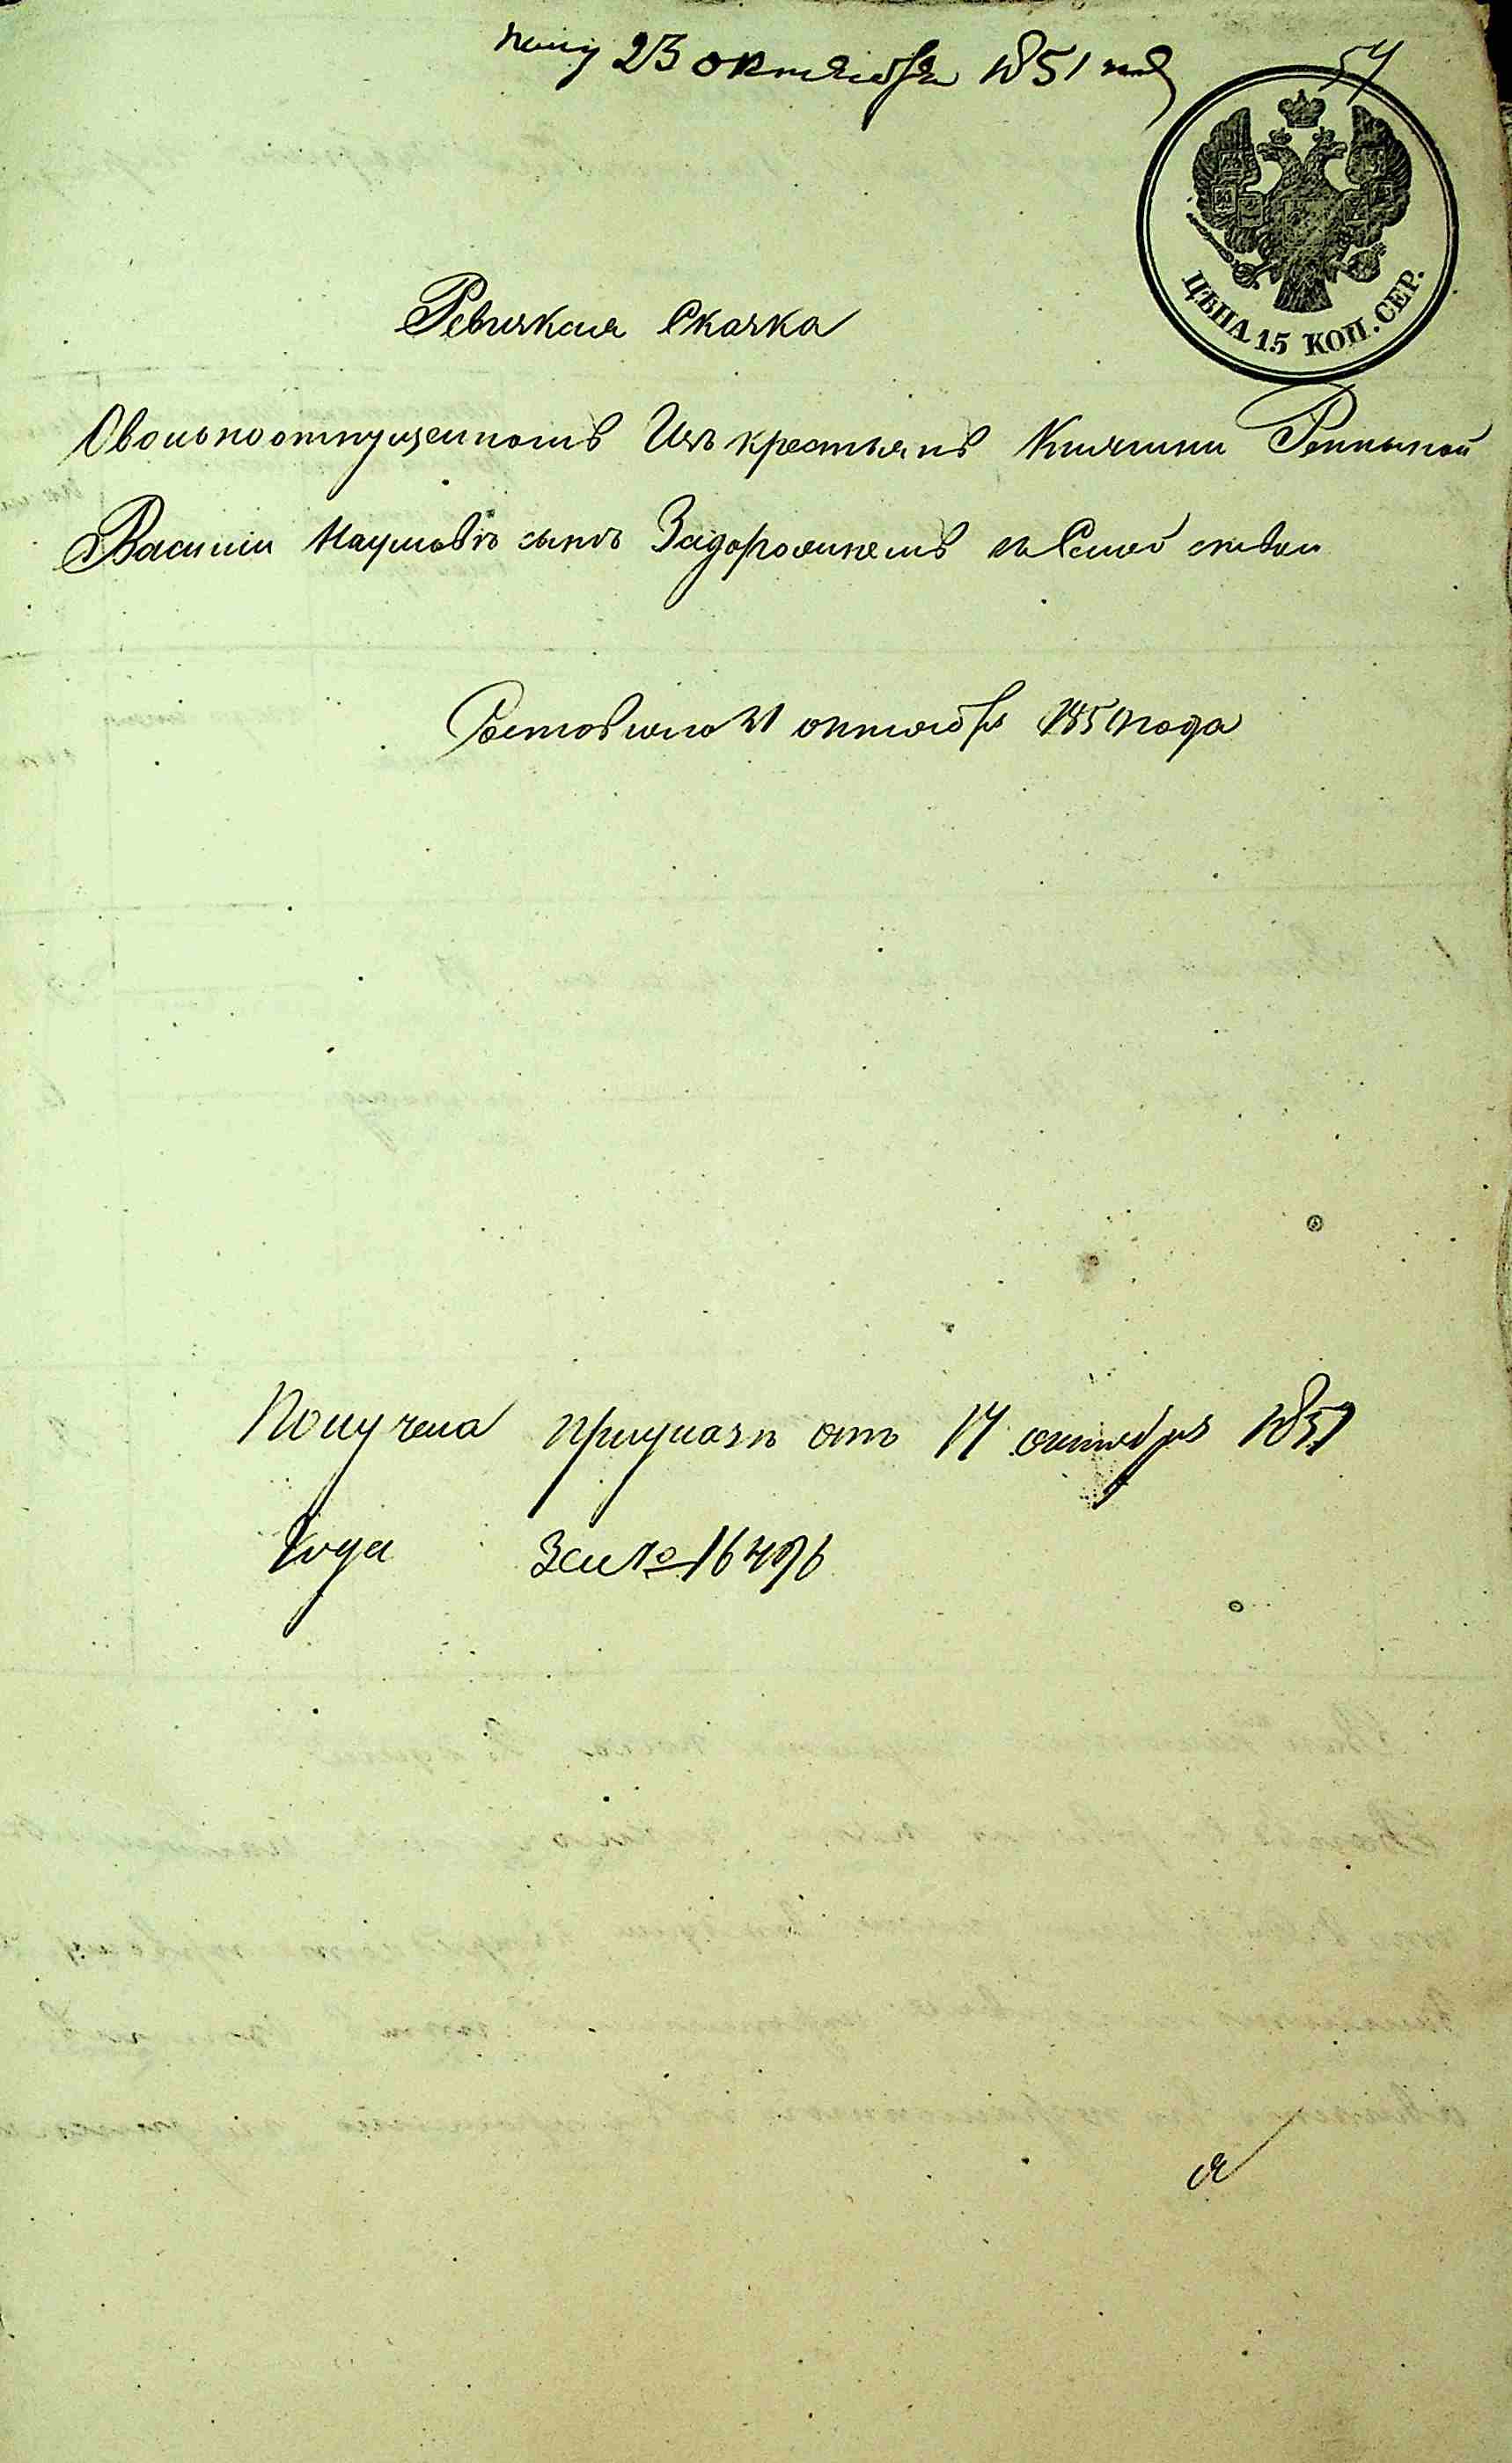 23 октября 1851 год
54
ЦѢНА 15 КОП. СЕР.
Ревизская Сказка
Овольноотпущенномъ Изъ крестьянъ Княгини Репниной
Василии Наумовѣ сынѣ Задорожнемъ
Состоялась 21 октября 1851 года
Получена при указѣ отъ 17 октября 1851
Года За №